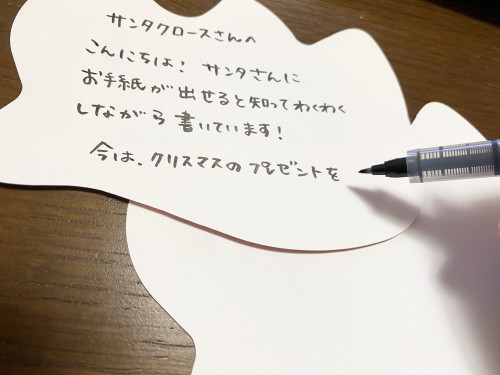 サンタクロースさんへ
こんにちは！ サンタさんに
お手紙が出せると知ってわくわく
しながら書いています！
今は、クリスマスのプレゼントを